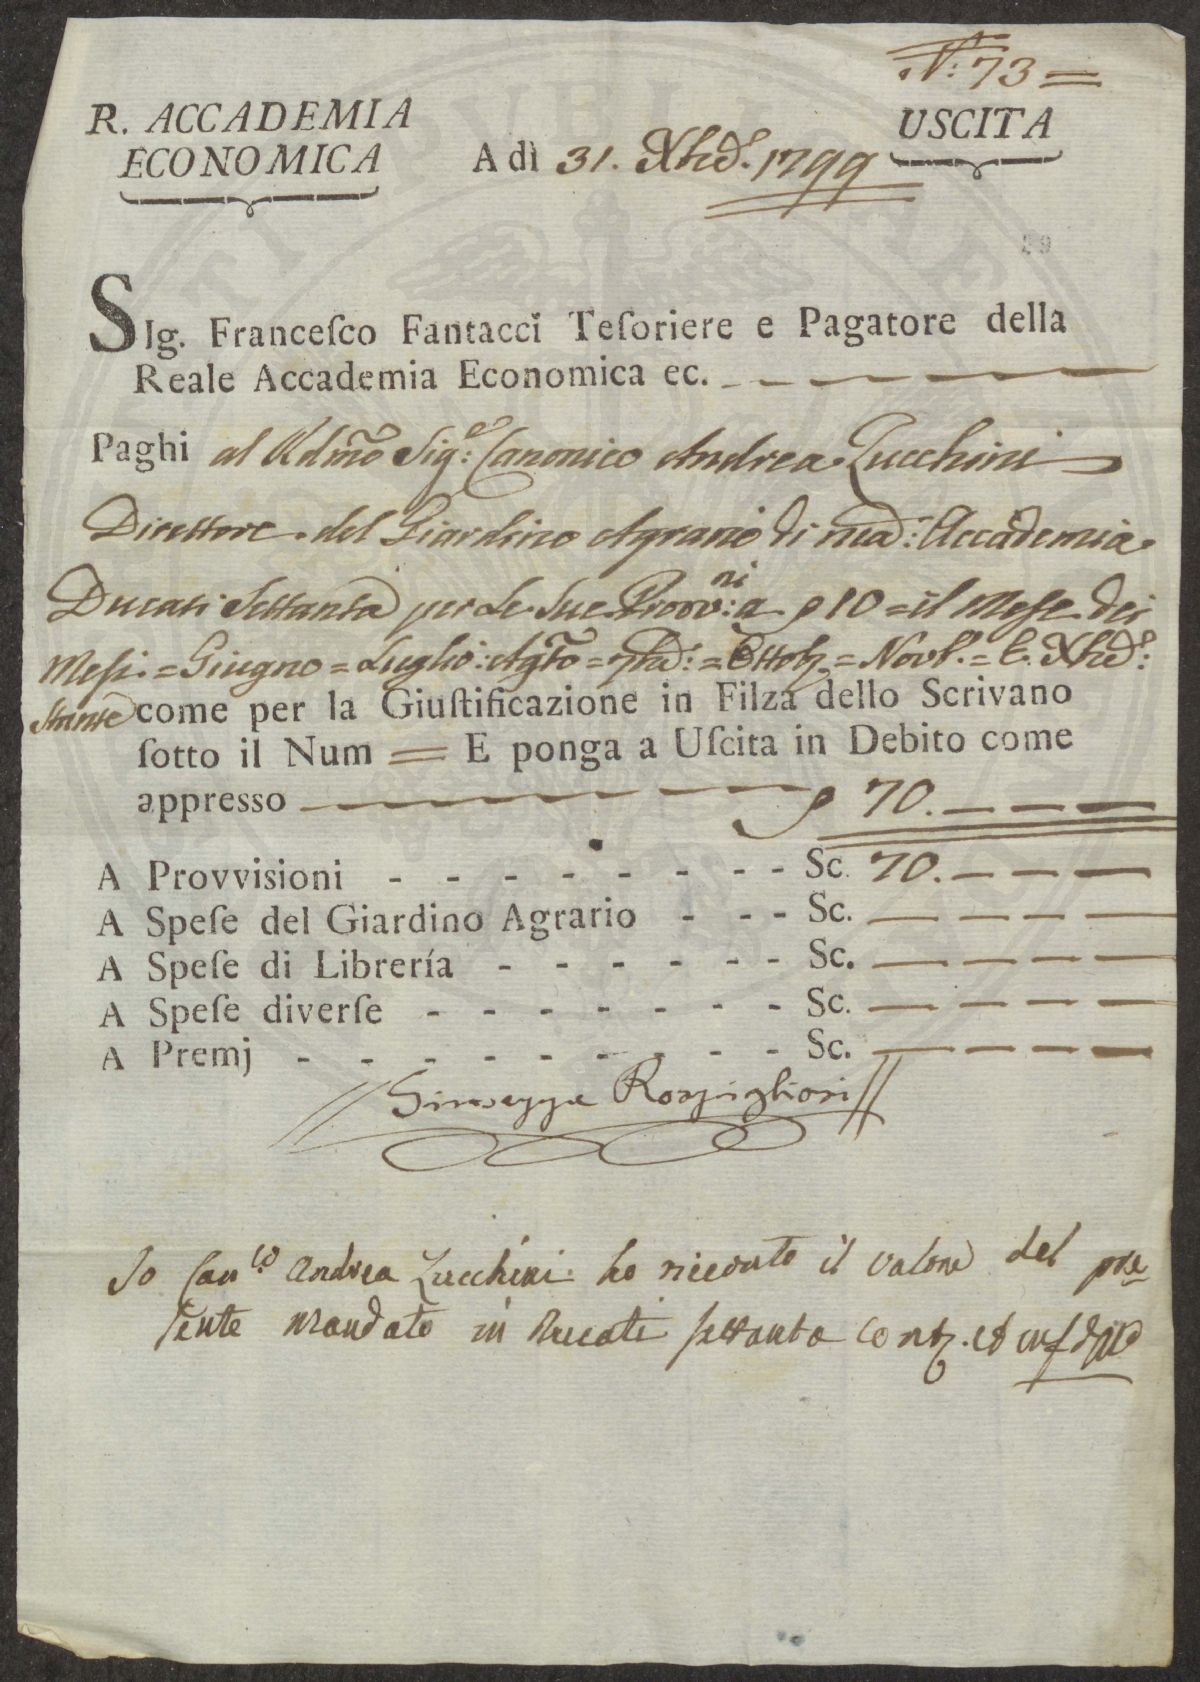 N.° 73 =
R. ACCADEMIA
ECONOMICA
A dì 31. Xbre. 1799
USCITA
SIg. Franceſco Fantacci Teſoriere e Pagatore della
Reale Accademia Economica ec.
Paghi al Rdmo Sig.e Canonico Andrea Zucchini
Direttore del Giardino Agrario di med.a Accademia
Ducati Settanta per Le Sue Provv:ni a 10 = il Mese dei
Mesi = Giugno = Luglio: Agto = 7bre: = Ottob. = Novb.e = E Xbre:
Stante come per la Giuſtificazione in Filza dello Scrivano
ſotto il Num = E ponga a Uſcita in Debito come
appresso 70.
A Provvisioni - - - - - - - - Sc. 70.
A Speſe del Giardino Agrario - - - Sc.
A Speſe di Librería - - - - - - Sc.
A Speſe diverſe - - - - - - - Sc.
A Premj - - - - - - - - - Sc.
Giuseppe Rospigliosi
Io Can.co Andrea Zucchini ho ricevuto il valore del pre
sente mandato in Ducati settanta cont.